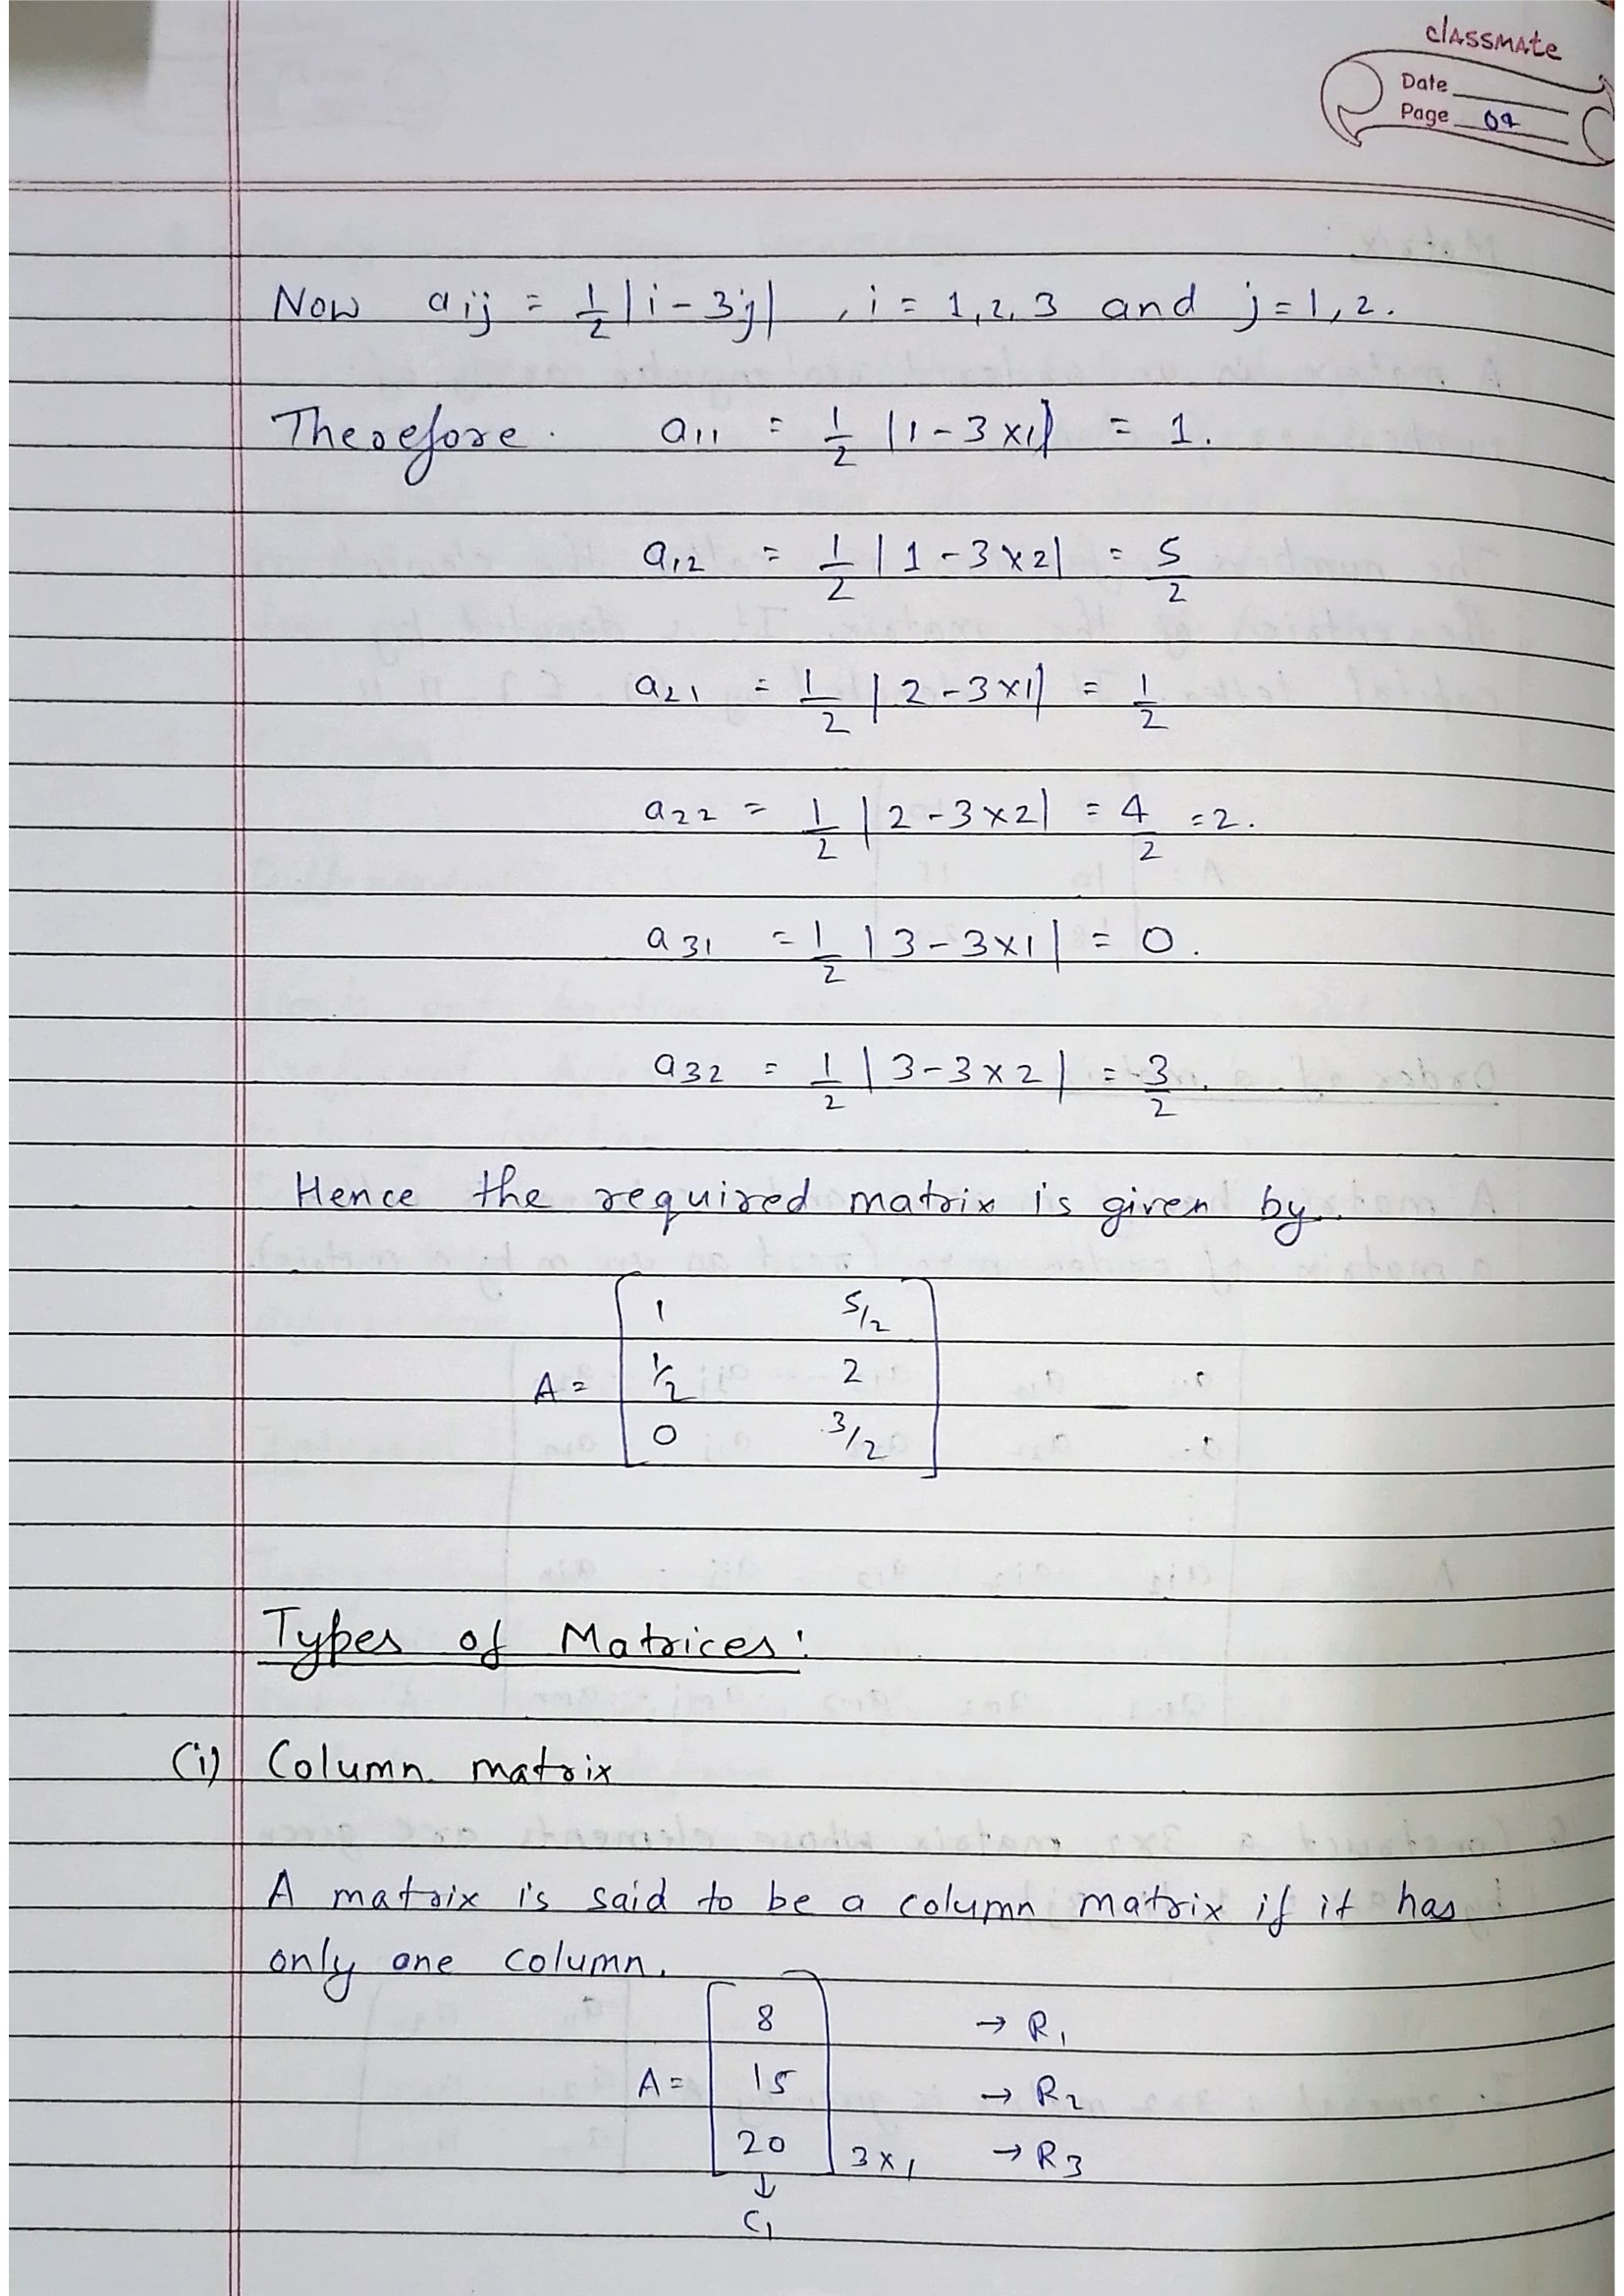 classmate
Date
Page
Now aij = 1/2 |i - 3j| , i = 1, 2, 3 and j = 1, 2.
Therefore. a11 = 1/2 |1 - 3 x 1| = 1.
a12 = 1/2 |1 - 3 x 2| = 5/2
a21 = 1/2 |2 - 3 x 1| = 1/2
a22 = 1/2 |2 - 3 x 2| = 4/2 = 2.
a31 = 1/2 |3 - 3 x 1| = 0.
a32 = 1/2 |3 - 3 x 2| = 3/2.
Hence the required matrix is given by.
1 5/2
A = 1/2 2
0 3/2
Types of Matrices:
(i) Column matrix
A matrix is said to be a column matrix if it has
only one column.
8 → R1
A = 15 → R2
20 3 x 1 → R3
↓
C1